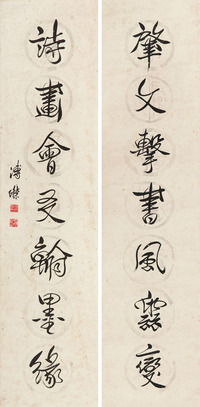 肇文擊書風雲變
詩畫會友翰墨緣
溥傑